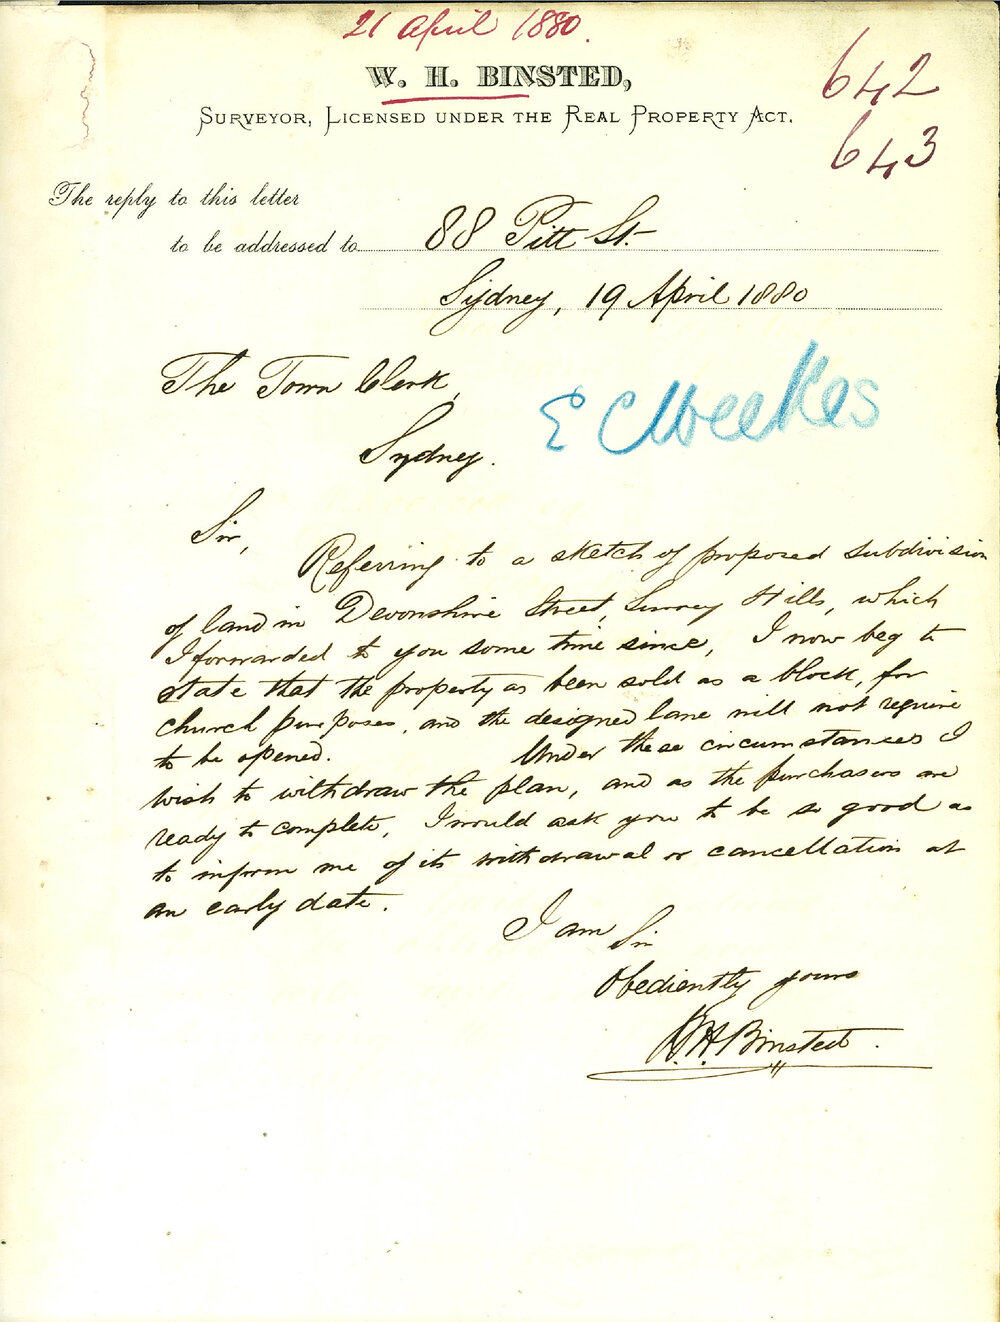 21 April 1880.
W. H. BINSTED,
SURVEYOR, LICENSED UNDER THE REAL PROPERTY ACT.
642
643
The reply to this letter
to be addressed to 88 Pitt St.
Sydney, 19 April 1880
The Town Clerk,
Sydney.
E C Weekes
Sir,
Referring to a sketch of proposed subdivision
of land in Devonshire Street, Surrey Hills, which
I forwarded to you some time since, I now beg to
state that the property as been sold as a block, for
church purposes, and the designed lane will not require
to be opened. Under these circumstances I
wish to withdraw the plan, and as the purchasers are
ready to complete, I would ask you to be so good as
to inform me of its withdrawal or cancellation at
an early date.
I am Sir
Obediently yours
W. H. Binsted.